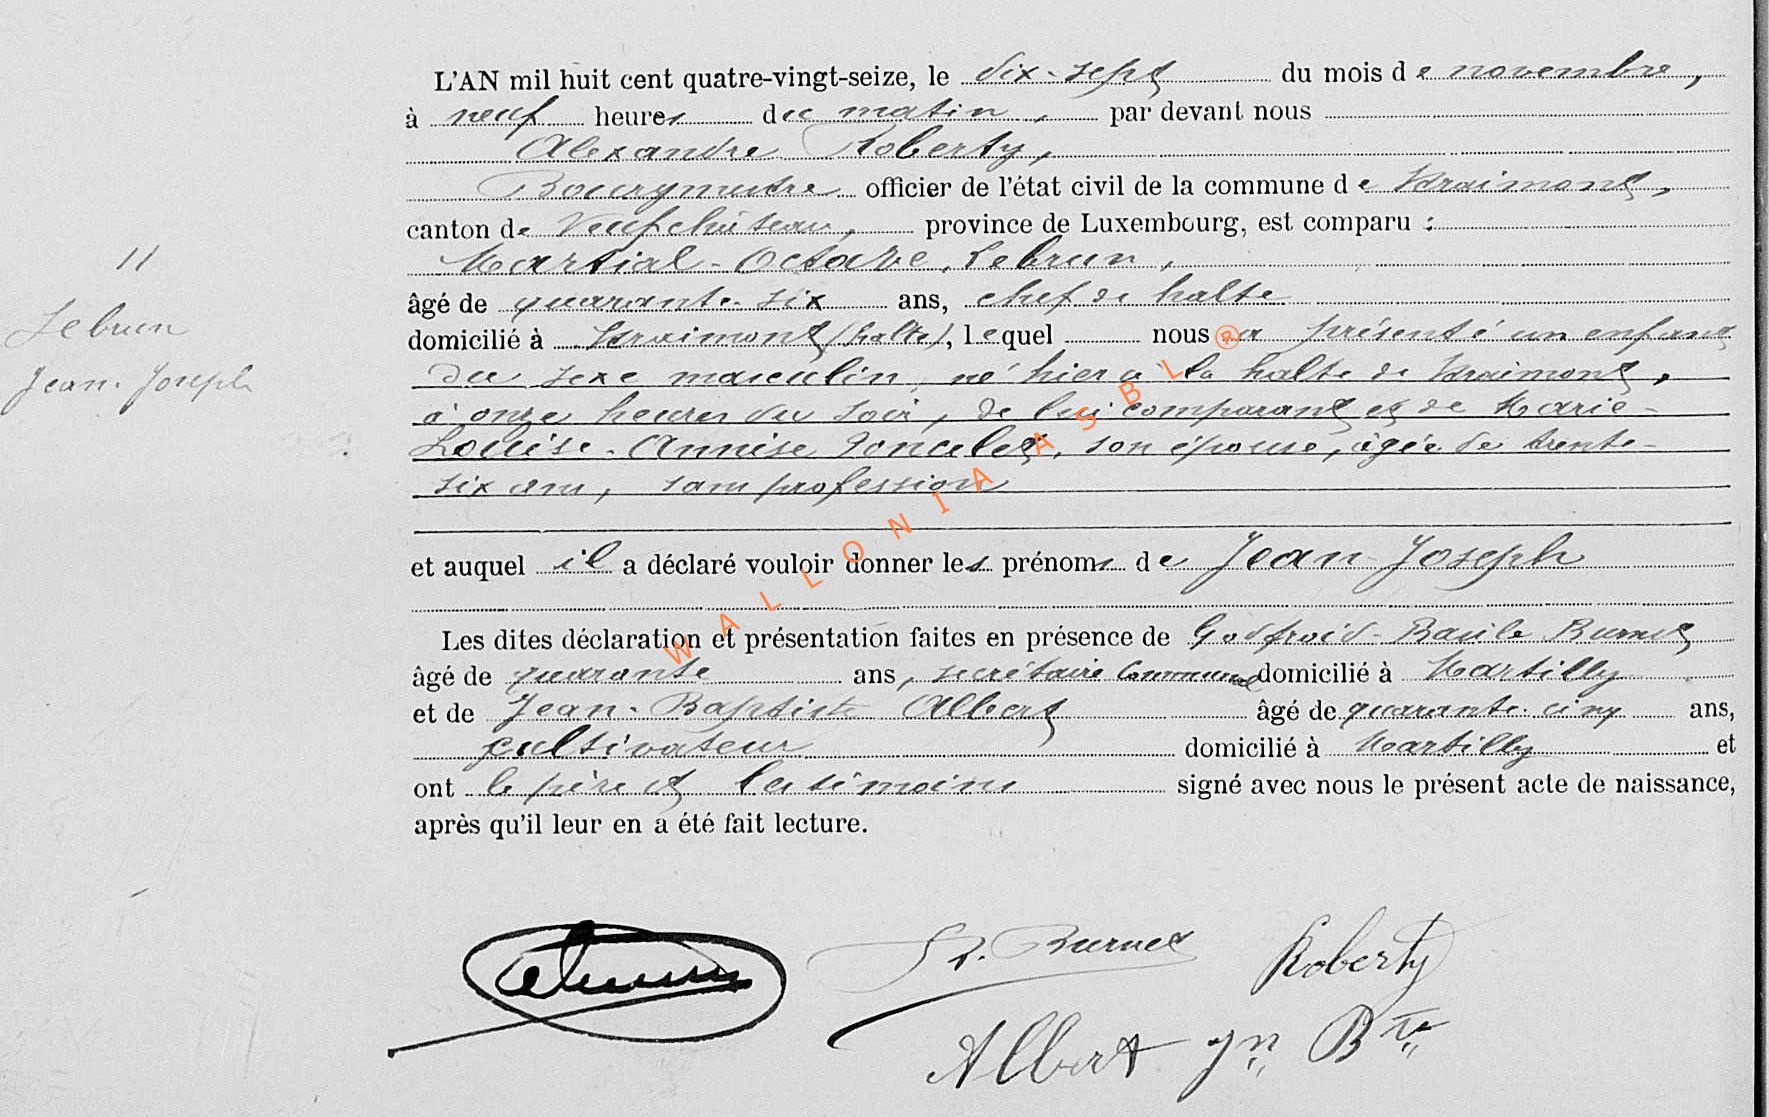 L'AN mil huit cent quatre-vingt-seize, le dix-sept du mois de novembre,
à neuf heures du matin, par devant nous
Alexandre Roberty,
Bourgmestre officier de l'état civil de la commune de Straimont,
canton de Neufchâteau, province de Luxembourg, est comparu :
11
Martial-Octave Lebrun,
âgé de quarante-six ans, chef de halte
Lebrun
domicilié à Straimont (halte), lequel nous a présenté un enfant
Jean-Joseph
du sexe masculin, né hier à la halte de Straimont,
à onze heures du soir, de lui comparant et de Marie-
Louise-Annise Poncelet, son épouse, âgée de trente-
six ans, sans profession
et auquel il a déclaré vouloir donner les prénoms de Jean-Joseph
Les dites déclaration et présentation faites en présence de Godfroid-Basile Burnet
âgé de quarante ans, secrétaire communal domicilié à Martilly
et de Jean-Baptiste Albert âgé de quarante-cinq ans,
cultivateur domicilié à Martilly et
ont le père et les témoins signé avec nous le présent acte de naissance,
après qu'il leur en a été fait lecture.
Lebrun Burnet Roberty
Albert Jn Bte
WALLONIA ASBL ®